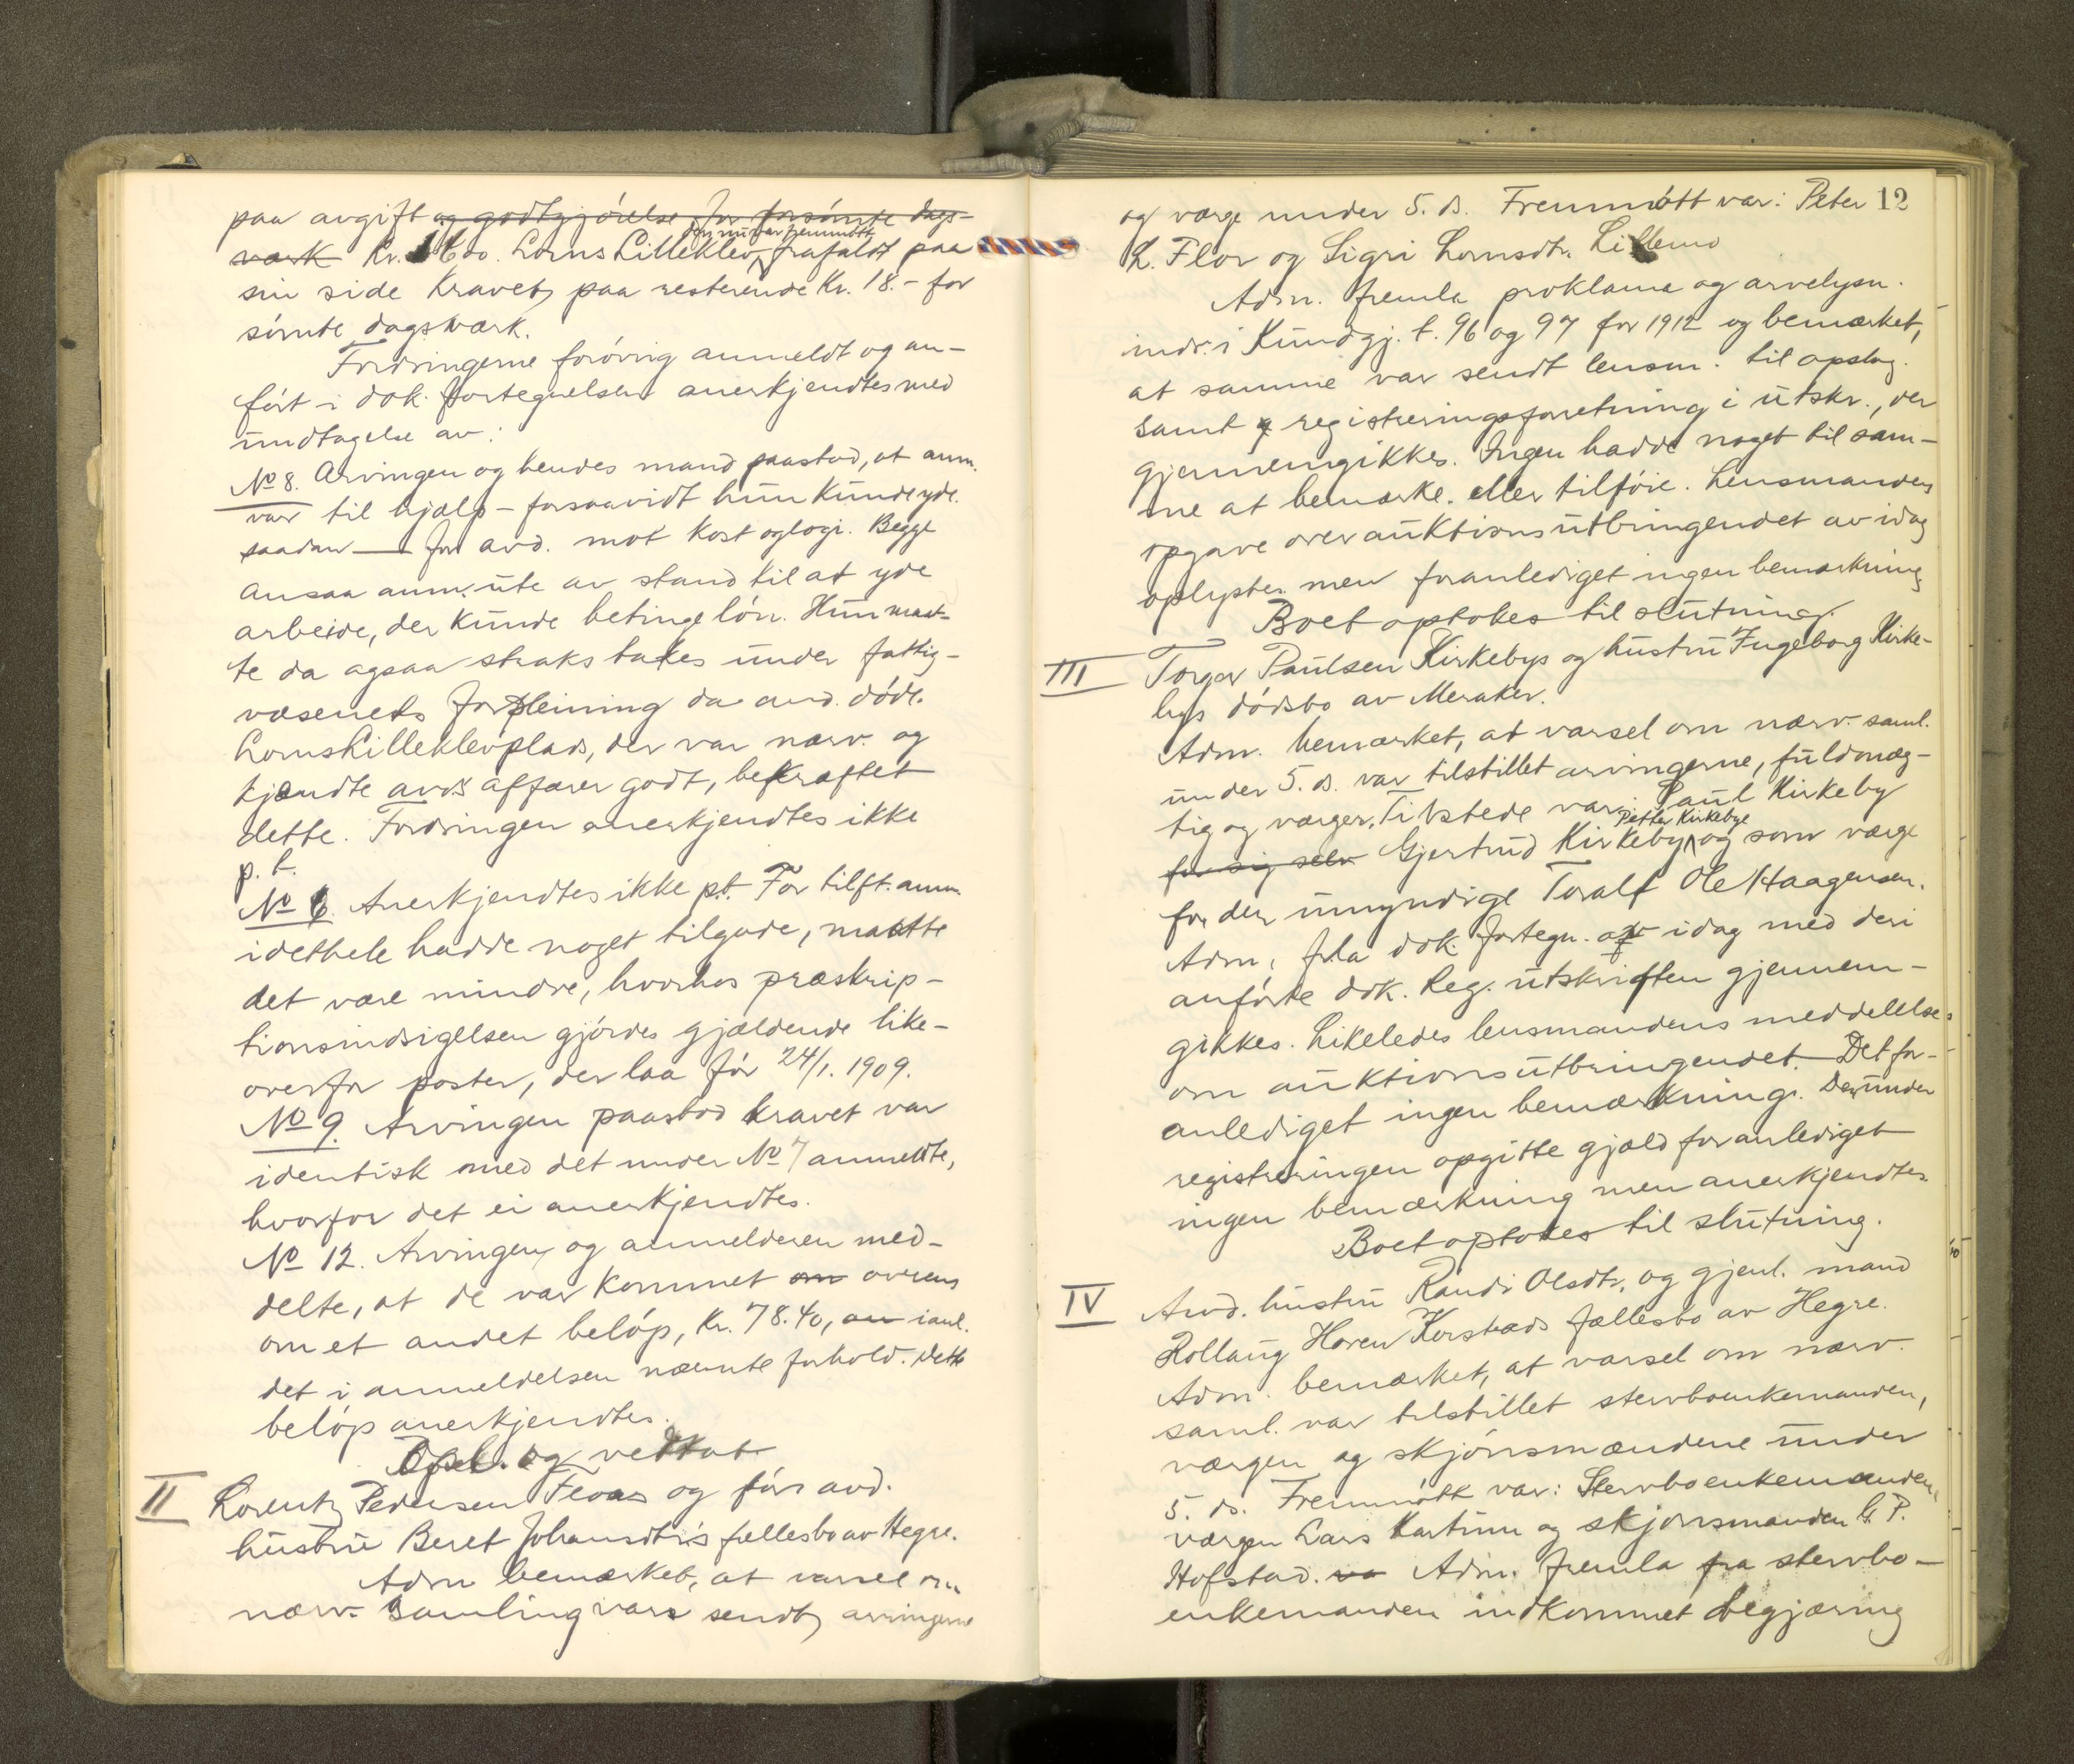 paa avgift og godtgjørelse for forsømte dags-
værk Kr. 16.00. Lorns Lilleklev, der nu var fremmøtt, frafaldt paa
sin side kravet paa resterende Kr. 18.- for
sømte dagsværk.
Fordringerne forøvrig anmeldt og an-
ført i dok. fortegnelsen anerkjendtes med
undtagelse av:
No 8. Arvingen og hendes mand paastod, at anm.
var til hjælp - forsaavidt hun kunde yde
saadan - for avd. mot kost og logi. Begge
ansaa anm. ute av stand til at yde
arbeide, der kunde betinge løn. Hun maat-
te da ogsaa straks takes under fattig-
væsenets forpleining da avd. døde.
Lorns Lilleklevplads, der var nærv. og
kjendte avds affærer godt, bekræftet
dette. Fordringen anerkjendtes ikke
p. t.
No 6. Anerkjendtes ikke p.t. For tilft. anm.
idethele hadde noget tilgode, maatte
det være mindre, hvorhos præskrip-
tionsindsigelsen gjørdes gjældende like-
overfor poster, der laa før 24/1. 1909.
No 9. Arvingen paastod kravet var
identisk med det under No 7 anmeldte,
hvorfor det ei anerkjendtes.
No 12. Arvingen og anmelderen med-
delte, at de var kommet om overens
om et andet beløp, Kr. 78.40, an ianl.
det i anmeldelsen nævnte forhold. Dette
beløp anerkjendtes.
Opl. og vedtat
II Lorentz Pedersen Floas og før avd.
hustru Beret Johansdtr's fællesbo av Hegre.
Adm bemærket, at varsel om
nærv. samling var sendt arvingerne
12
og værge under 5. ds. Fremmøtt var: Peter
L. Flor og Sigri Lornsdtr. Lillemo
Adm. fremla proklama og arvelysn.
indr. i Kundgj. t. 96 og 97 for 1912 og bemærket,
at samme var sendt lensm. til opslag.
samt registreringsforretning i utskr., der
gjennemgikkes. Ingen hadde noget til sam-
me at bemærke eller tilføie. Lensmandens
opgave over auktionsutbringendet av idag
oplystes men foranlediget ingen bemærkning
Boet optokes til slutning.
III Torger Paulsen Kirkebys og hustru Ingeborg Kirke-
bys dødsbo av Meraker.
Adm. bemærket, at varsel om nærv. saml.
under 5. ds. var tilstillet arvingerne, fuldmæg-
tig og værger. Tilstede var: Paul Kirkeby
for sig selv Gjertrud Kirkeby, Petter Kirkebye og som værge
for den umyndige Toralf Ole Haagensen.
Adm. frla dok. fortegn. av idag med deri
anførte dok. Reg. utskriften gjennem-
gikkes. Likeledes lensmandens meddelelse
om auktionsutbringendet. Det for-
anlediget ingen bemærkning. Den under
registreringen opgitte gjæld foranlediget
ingen bemærkning men anerkjendtes.
Boet optokes til slutning.
IV Avd. hustru Randi Olsdtr. og gjenl. mand
Rollaug Haren Korstads fællesbo av Hegre.
Adm. bemærket, at varsel om nærv.
saml. var tilstillet stervboenkemanden,
værgen og skjønsmændene under
5. ds. Fremmøtt var: Stervboenkemanden,
værgen Lars Kartum og skjønsmanden G. P.
Hofstad. va Adm. fremla fra stervbo-
enkemanden indkommet begjæring